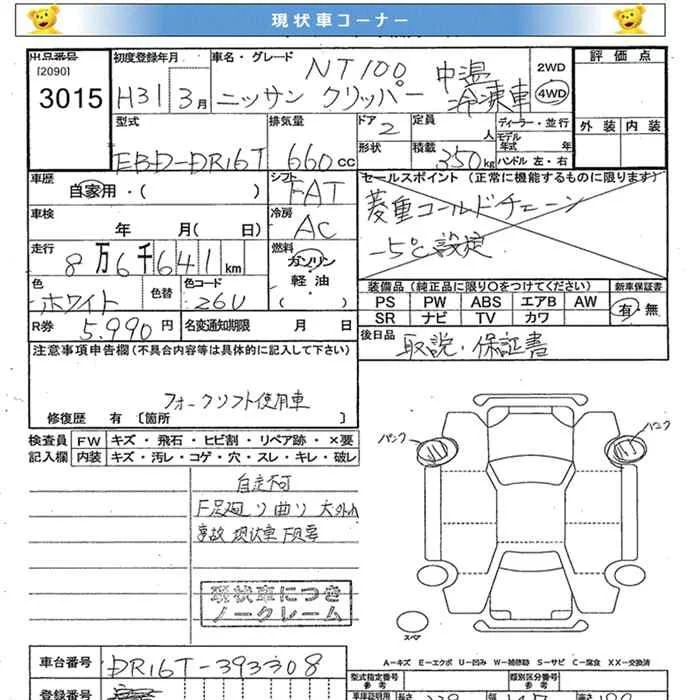 現状車コーナー
出品番号 初度登録年月 車名・グレード 2WD 評価点
[2090]
3015 H31 3月 NT100 ニッサン クリッパー 中温 冷凍車 4WD
型式 排気量 ドア 2 定員 人 ディーラー・並行 外装 内装
EBD-DR16T 660cc 形状 積載 350kg モデル年式 年 ハンドル 左・右
車歴 自家用・( ) シフト FAT セールスポイント (正常に機能するものに限ります)
車検 年 月( 日) 冷房 AC 菱重コールドチェーン
走行 8万6千641km 燃料 ガソリン 軽油 ( ) -5℃設定
色 ホワイト 色替 色コード 26U 装備品(純正品に限り○をつけてください) 新車保証書
PS PW ABS エアB AW 有・無
SR ナビ TV カワ
R券 5.990円 名変通知期限 月 日 後日品 取説・保証書
注意事項申告欄(不具合内容等は具体的に記入して下さい)
フォークリフト使用車
修復歴 有〔箇所 〕
検査員 FW キズ・飛石・ヒビ割・リペア跡・×要
記入欄 内装 キズ・汚レ・コゲ・穴・スレ・キレ・破レ
パンク パンク
自走不可
F足廻リ曲リ 大外れ
事故現状車
現状車につき
ノークレーム
スペア
A-キズ E-エクボ U-凹み W-補修跡 S-サビ C-腐食 XX-交換済
車台番号 DR16T-393308 型式指定番号 参考 類別区分番号 参考
登録番号 車庫証明用 長さ